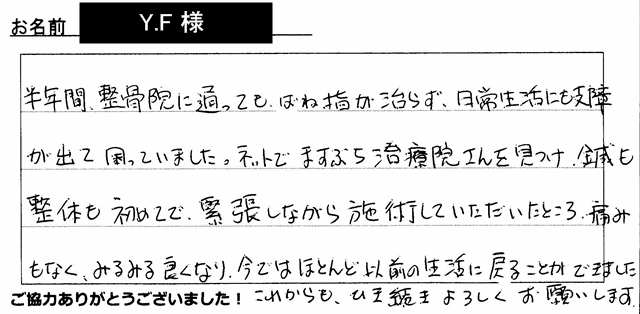 お名前 Y.F 様
半年間、整骨院に通っても、ばね指が治らず、日常生活にも支障
が出て困っていました。ネットでますぶち治療院さんを見つけ、鍼も
整体も初めてで、緊張しながら施術していただいたところ、痛み
もなく、みるみる良くなり、今ではほとんど以前の生活に戻ることができました
ご協力ありがとうございました！ これからも、ひき続きよろしくお願いします。